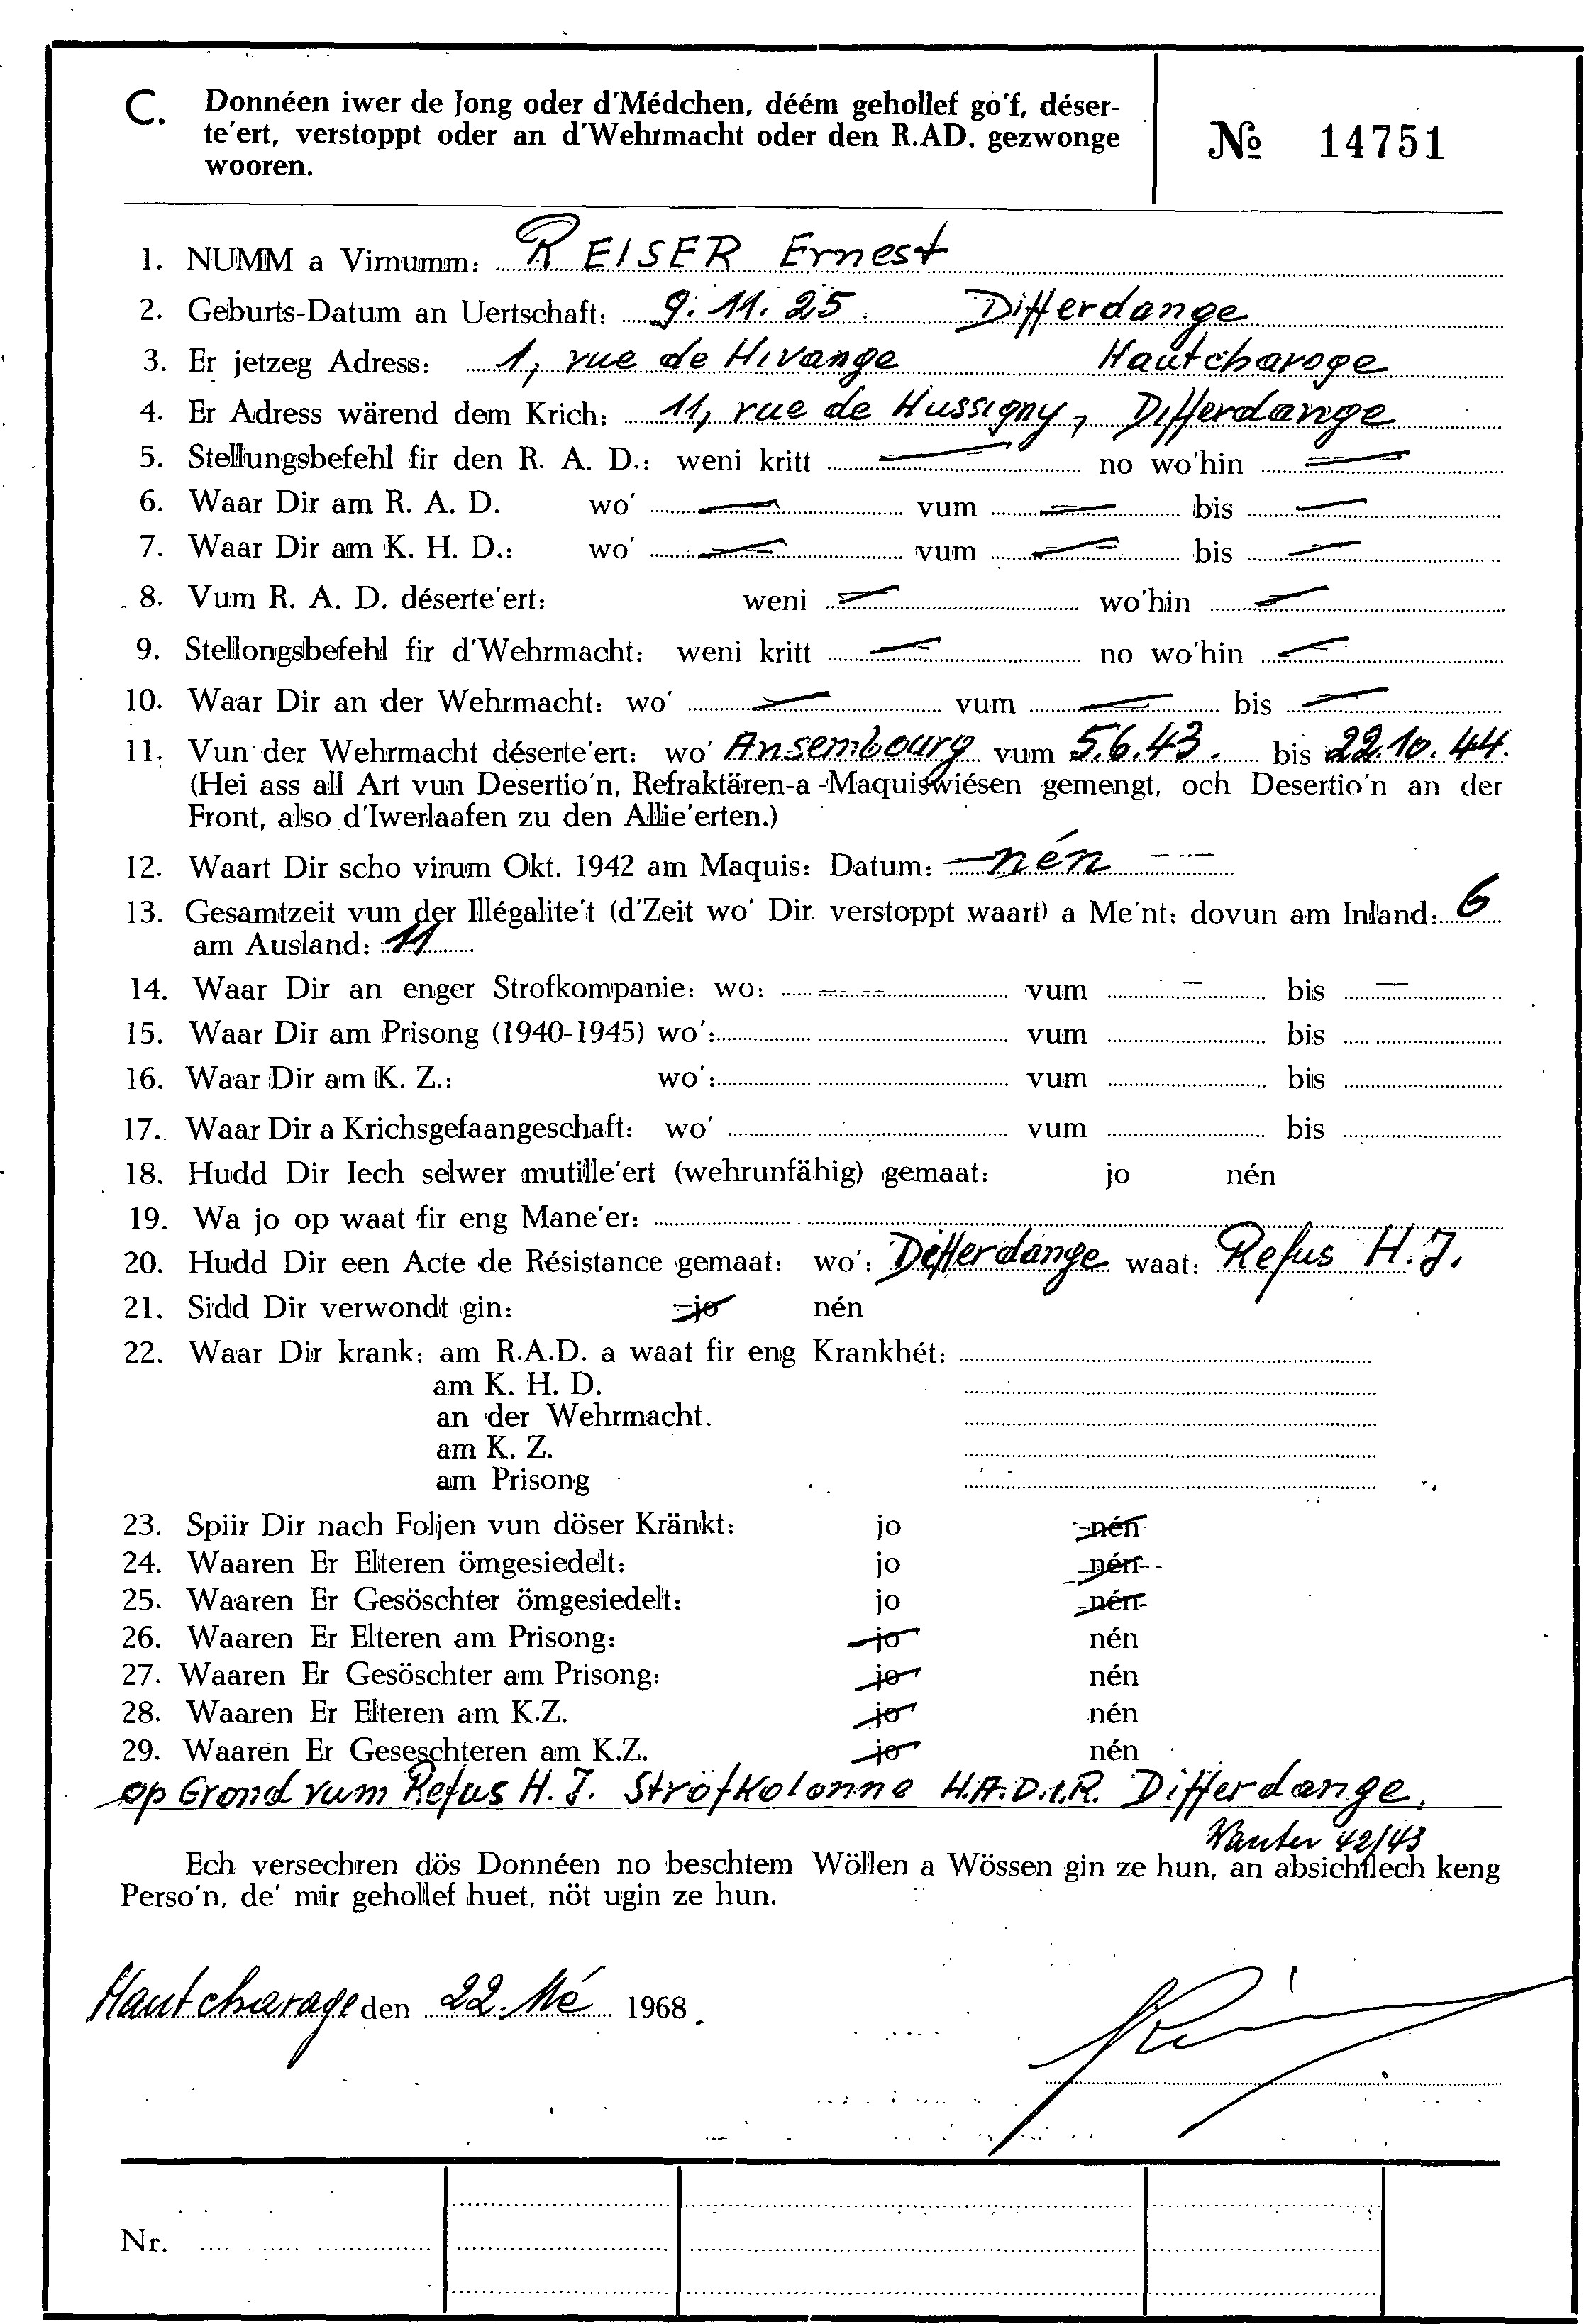 C. Donnéen iwer de Jong oder d'Médchen, déém gehollef go'f, déser-
te'ert, verstoppt oder an d'Wehrmacht oder den R.AD. gezwonge
wooren.
№ 14751
1. NUMM a Virnumm: REISER Ernest
2. Geburts-Datum an Uertschaft: 9. 11. 25. Differdange
3. Er jetzeg Adress: 1, rue de Hivange Hautcharage
4. Er Adress wärend dem Krich: 11, rue de Hussigny, Differdange
5. Stellungsbefehl fir den R. A. D.: weni kritt — no wo'hin —
6. Waar Dir am R. A. D. wo' — vum — bis —
7. Waar Dir am K. H. D.: wo' — vum — bis —
8. Vum R. A. D. déserte'ert: weni — wo'hin —
9. Stellongsbefehl fir d'Wehrmacht: weni kritt — no wo'hin —
10. Waar Dir an der Wehrmacht: wo' — vum — bis —
11. Vun der Wehrmacht déserte'ert: wo' Ansembourg vum 5.6.43. bis 22.10.44.
(Hei ass all Art vun Desertio'n, Refraktären-a-Maquiswiésen gemengt, och Desertio'n an der
Front, also d'Iwerlaafen zu den Allie'erten.)
12. Waart Dir scho virum Okt. 1942 am Maquis: Datum: — nén —
13. Gesamtzeit vun der Illégalite't (d'Zeit wo' Dir verstoppt waart) a Me'nt: dovun am Inland: 6
am Ausland: 11
14. Waar Dir an enger Strofkompanie: wo: — vum — bis —
15. Waar Dir am Prisong (1940-1945) wo': vum bis
16. Waar Dir am K. Z.: wo': vum bis
17. Waar Dir a Krichsgefaangeschaft: wo' vum bis
18. Hudd Dir Iech selwer mutille'ert (wehrunfähig) gemaat: jo nén
19. Wa jo op waat fir eng Mane'er:
20. Hudd Dir een Acte de Résistance gemaat: wo': Differdange waat: Refus H.J.
21. Sidd Dir verwondt gin: jo nén
22. Waar Dir krank: am R.A.D. a waat fir eng Krankhét:
am K. H. D.
an der Wehrmacht.
am K. Z.
am Prisong
23. Spiir Dir nach Foljen vun döser Kränkt: jo nén
24. Waaren Er Elteren ömgesiedelt: jo nén
25. Waaren Er Gesöschter ömgesiedelt: jo nén
26. Waaren Er Elteren am Prisong: jo nén
27. Waaren Er Gesöschter am Prisong: jo nén
28. Waaren Er Elteren am K.Z. jo nén
29. Waaren Er Geseschteren am K.Z. jo nén
op Grond vum Refus H.J. Strofkolonne H.A.D.I.R. Differdange.
Wanter 42/43
Ech versechren dös Donnéen no beschtem Wöllen a Wössen gin ze hun, an absichtlech keng
Perso'n, de' mir gehollef huet, nöt ugin ze hun.
Hautcharage den 22. Mé 1968.
Nr.